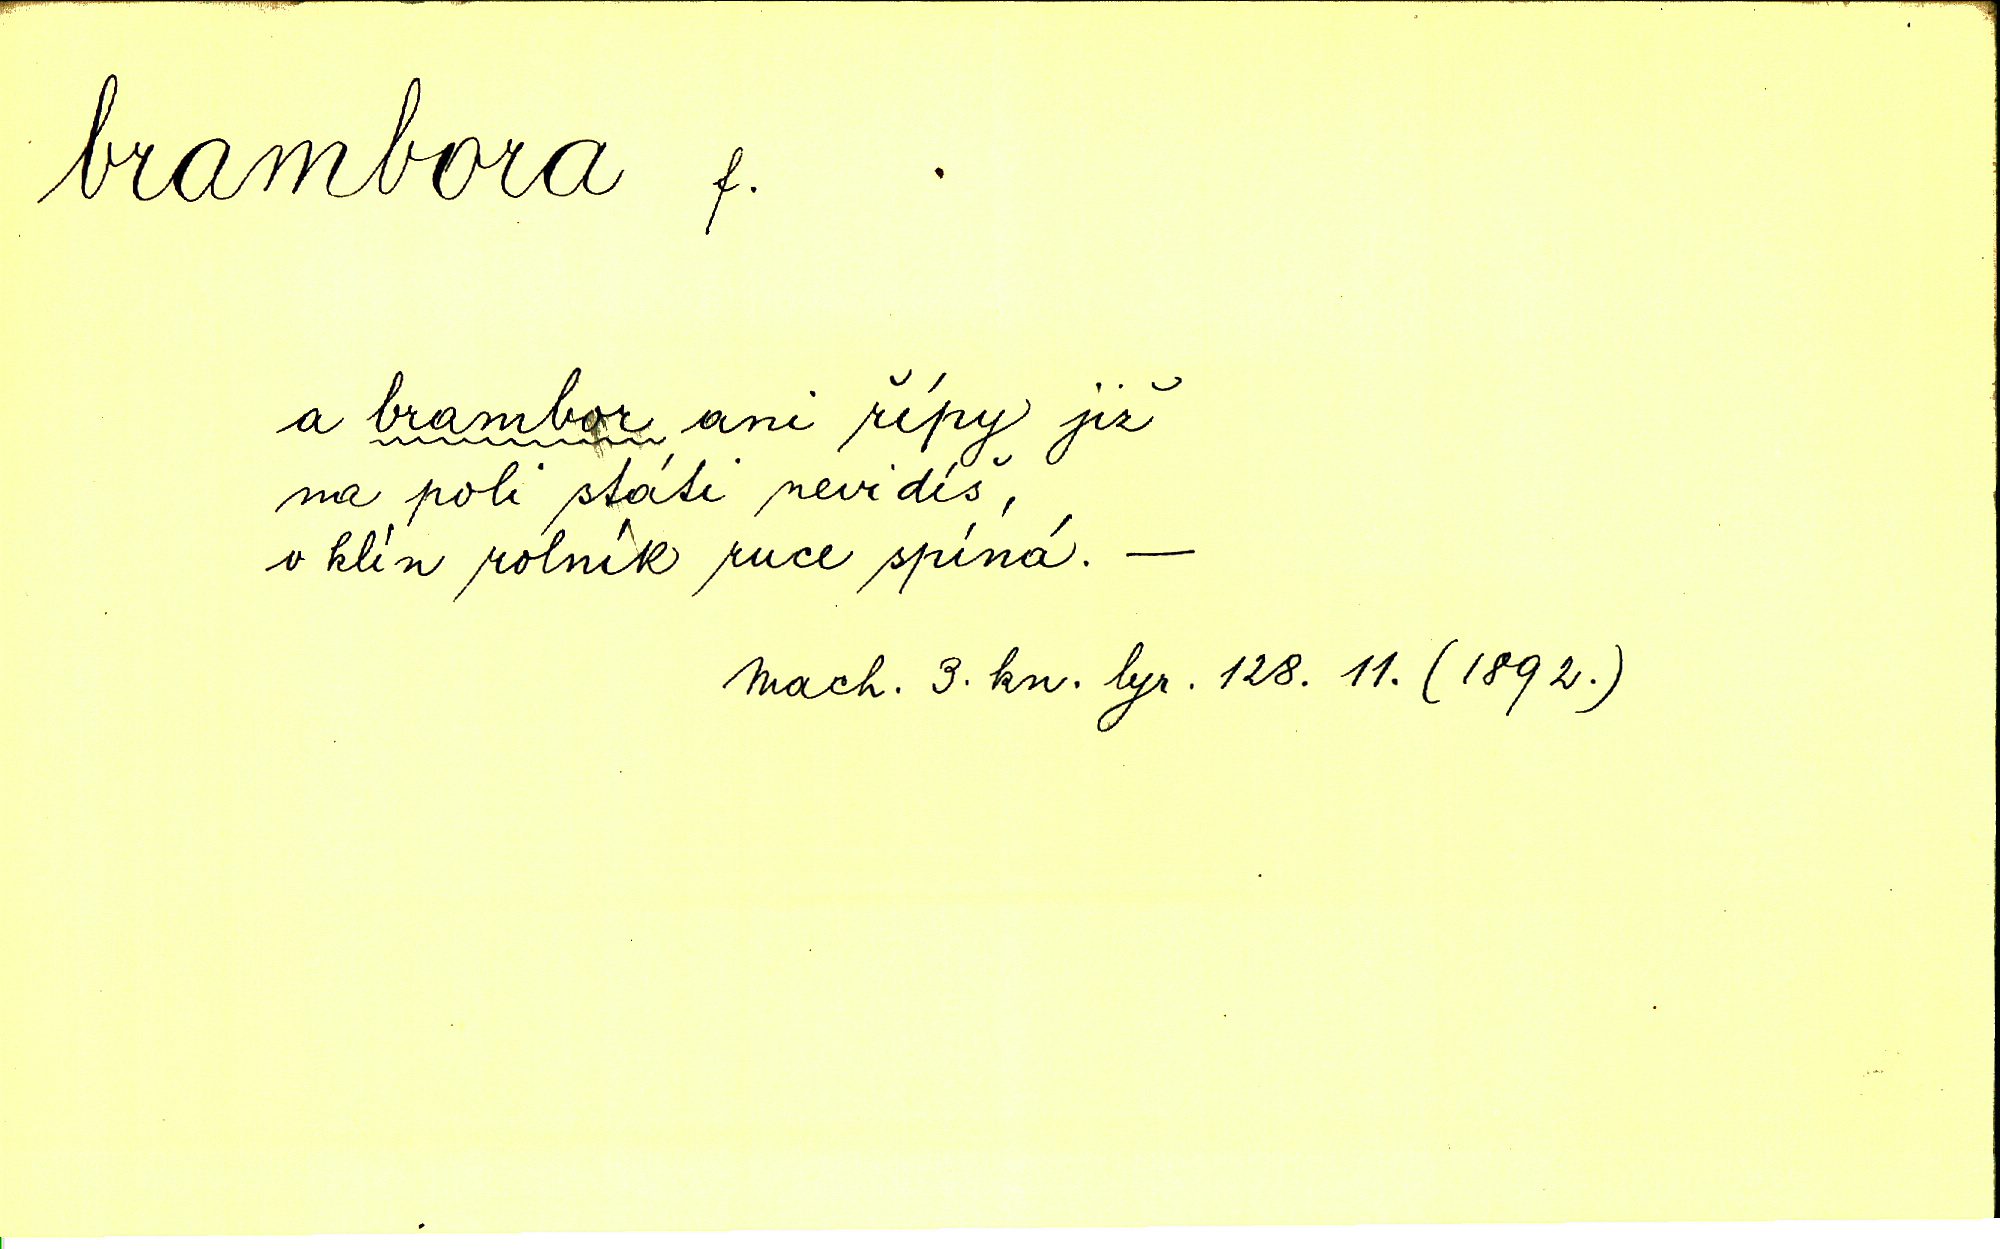 brambora f.
a brambor ani řípy již
na poli státi nevidíš,
v klín rolník ruce spíná. —
Mach. 3. kn. lyr. 128. 11. (1892.)